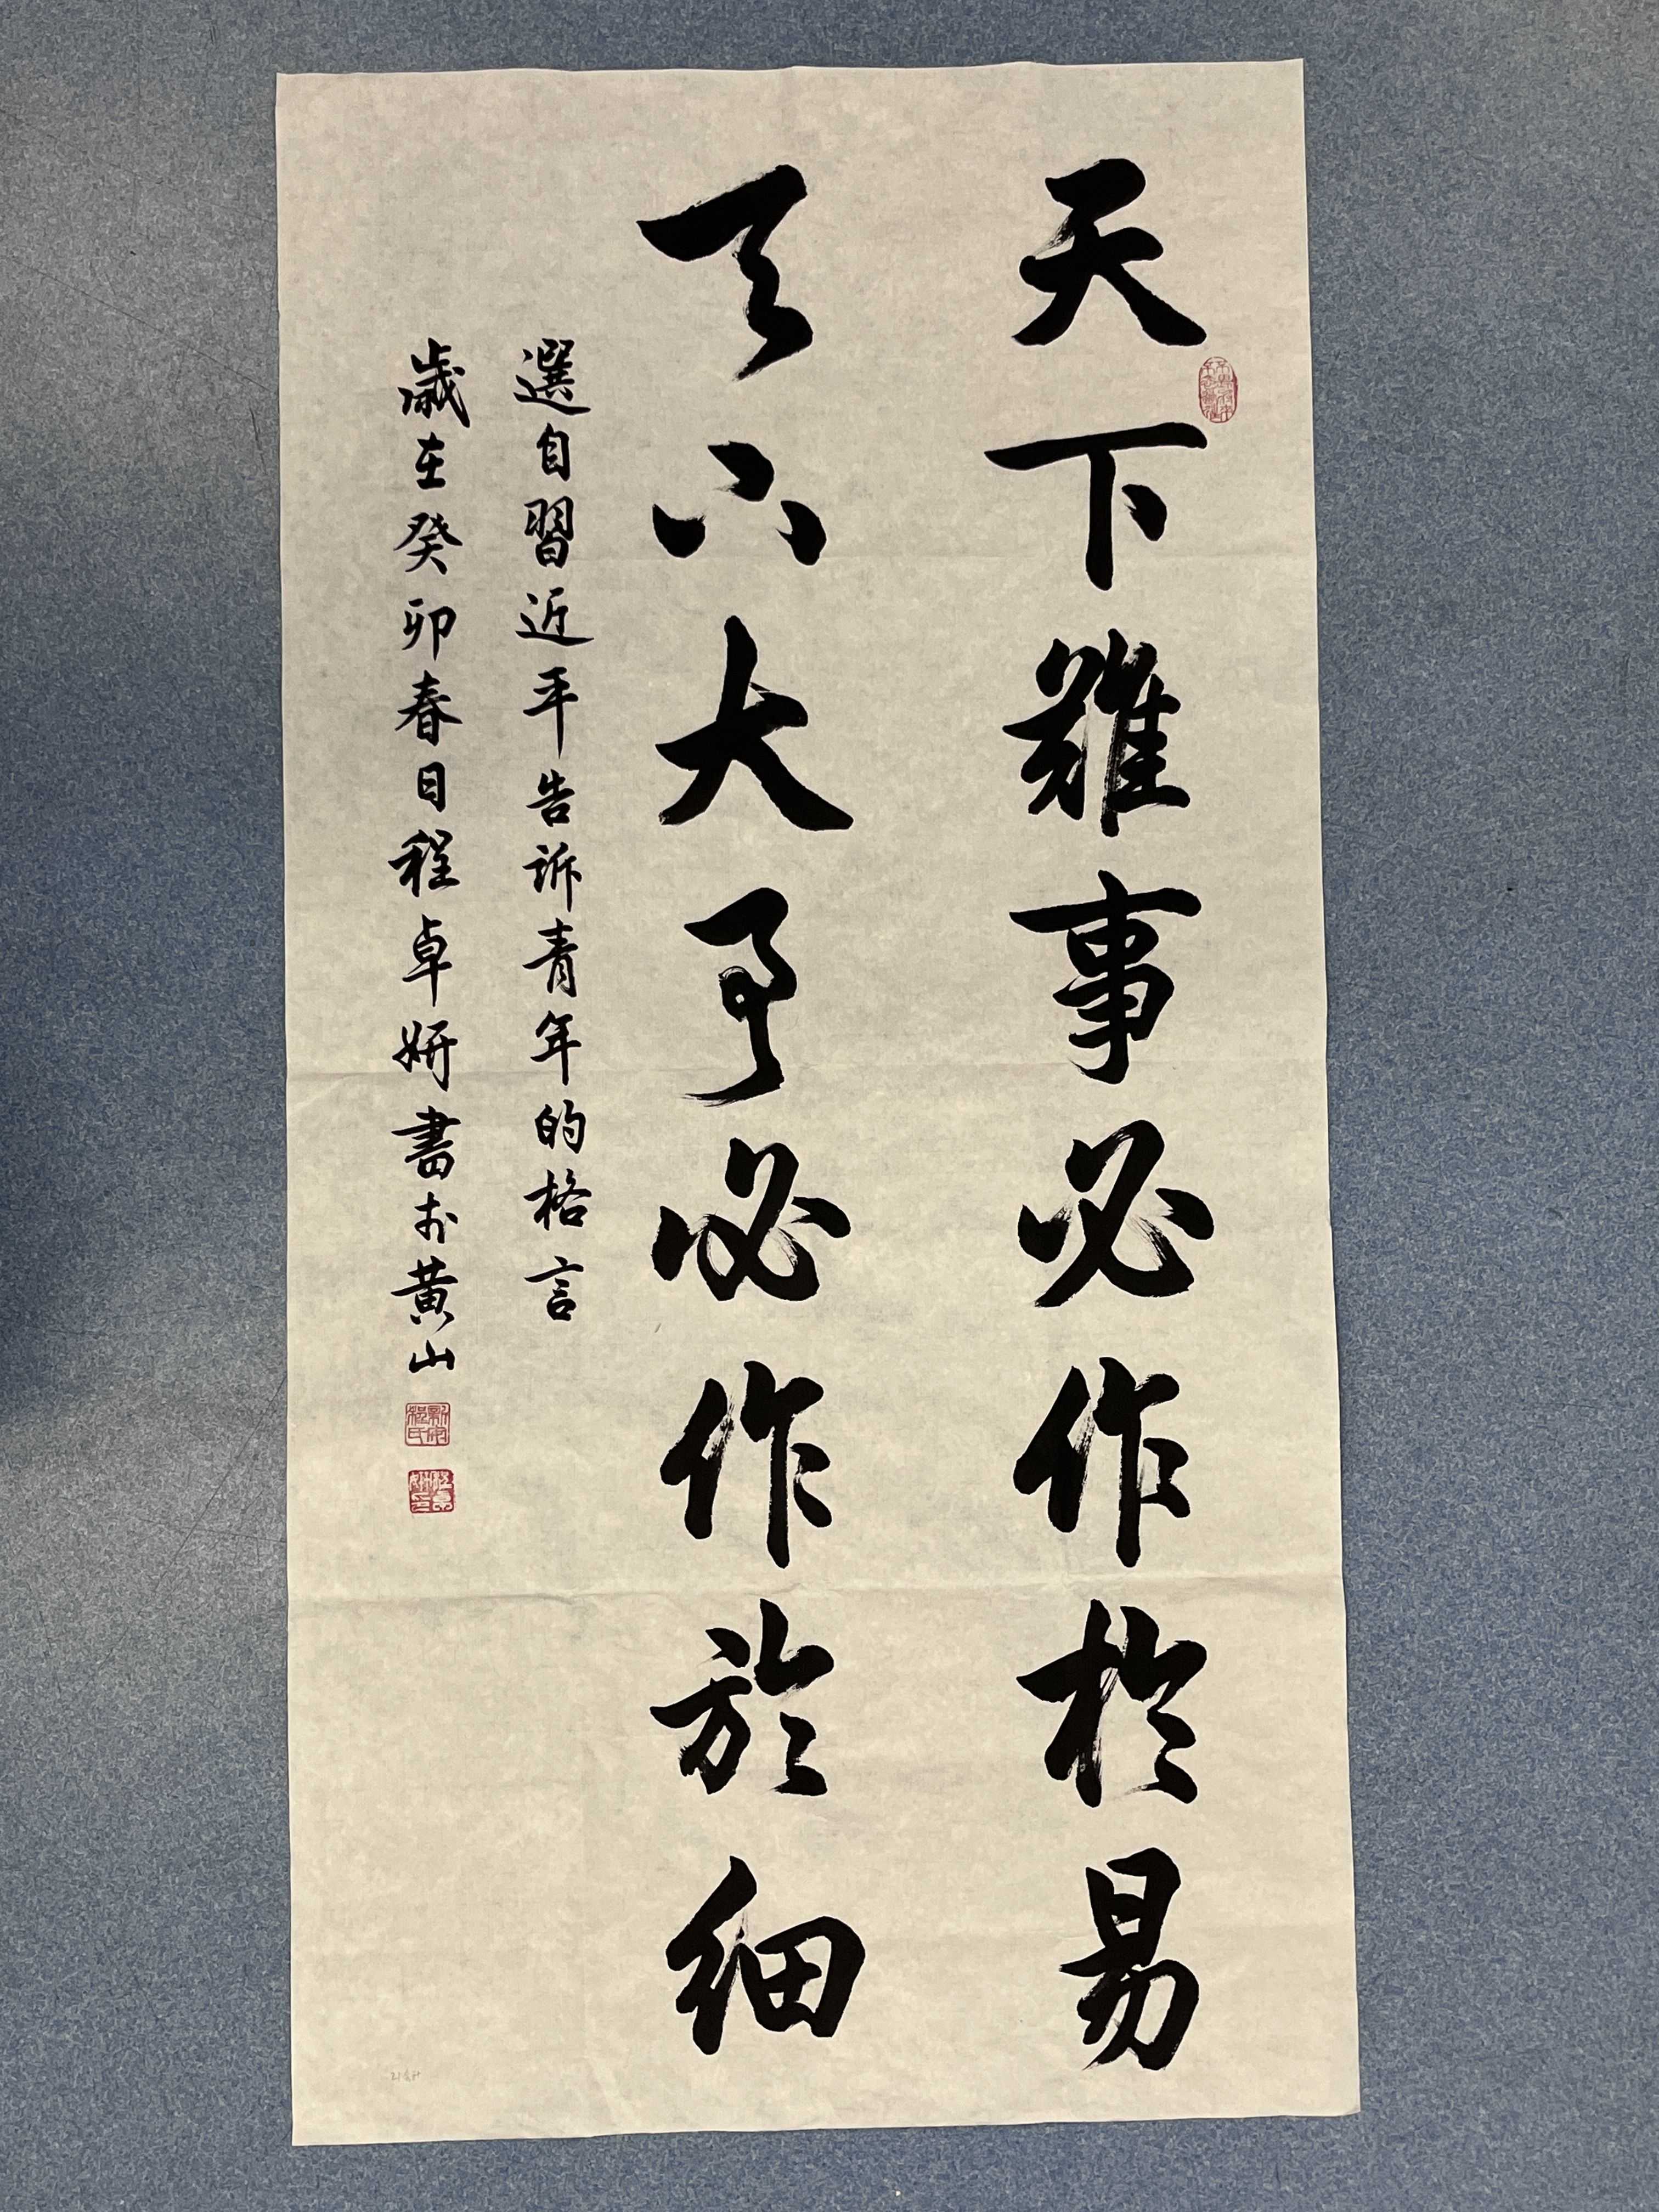 天下難事必作於易
天下大事必作於細
選自習近平告訴青年的格言
歲在癸卯春日程卓妍書於黄山